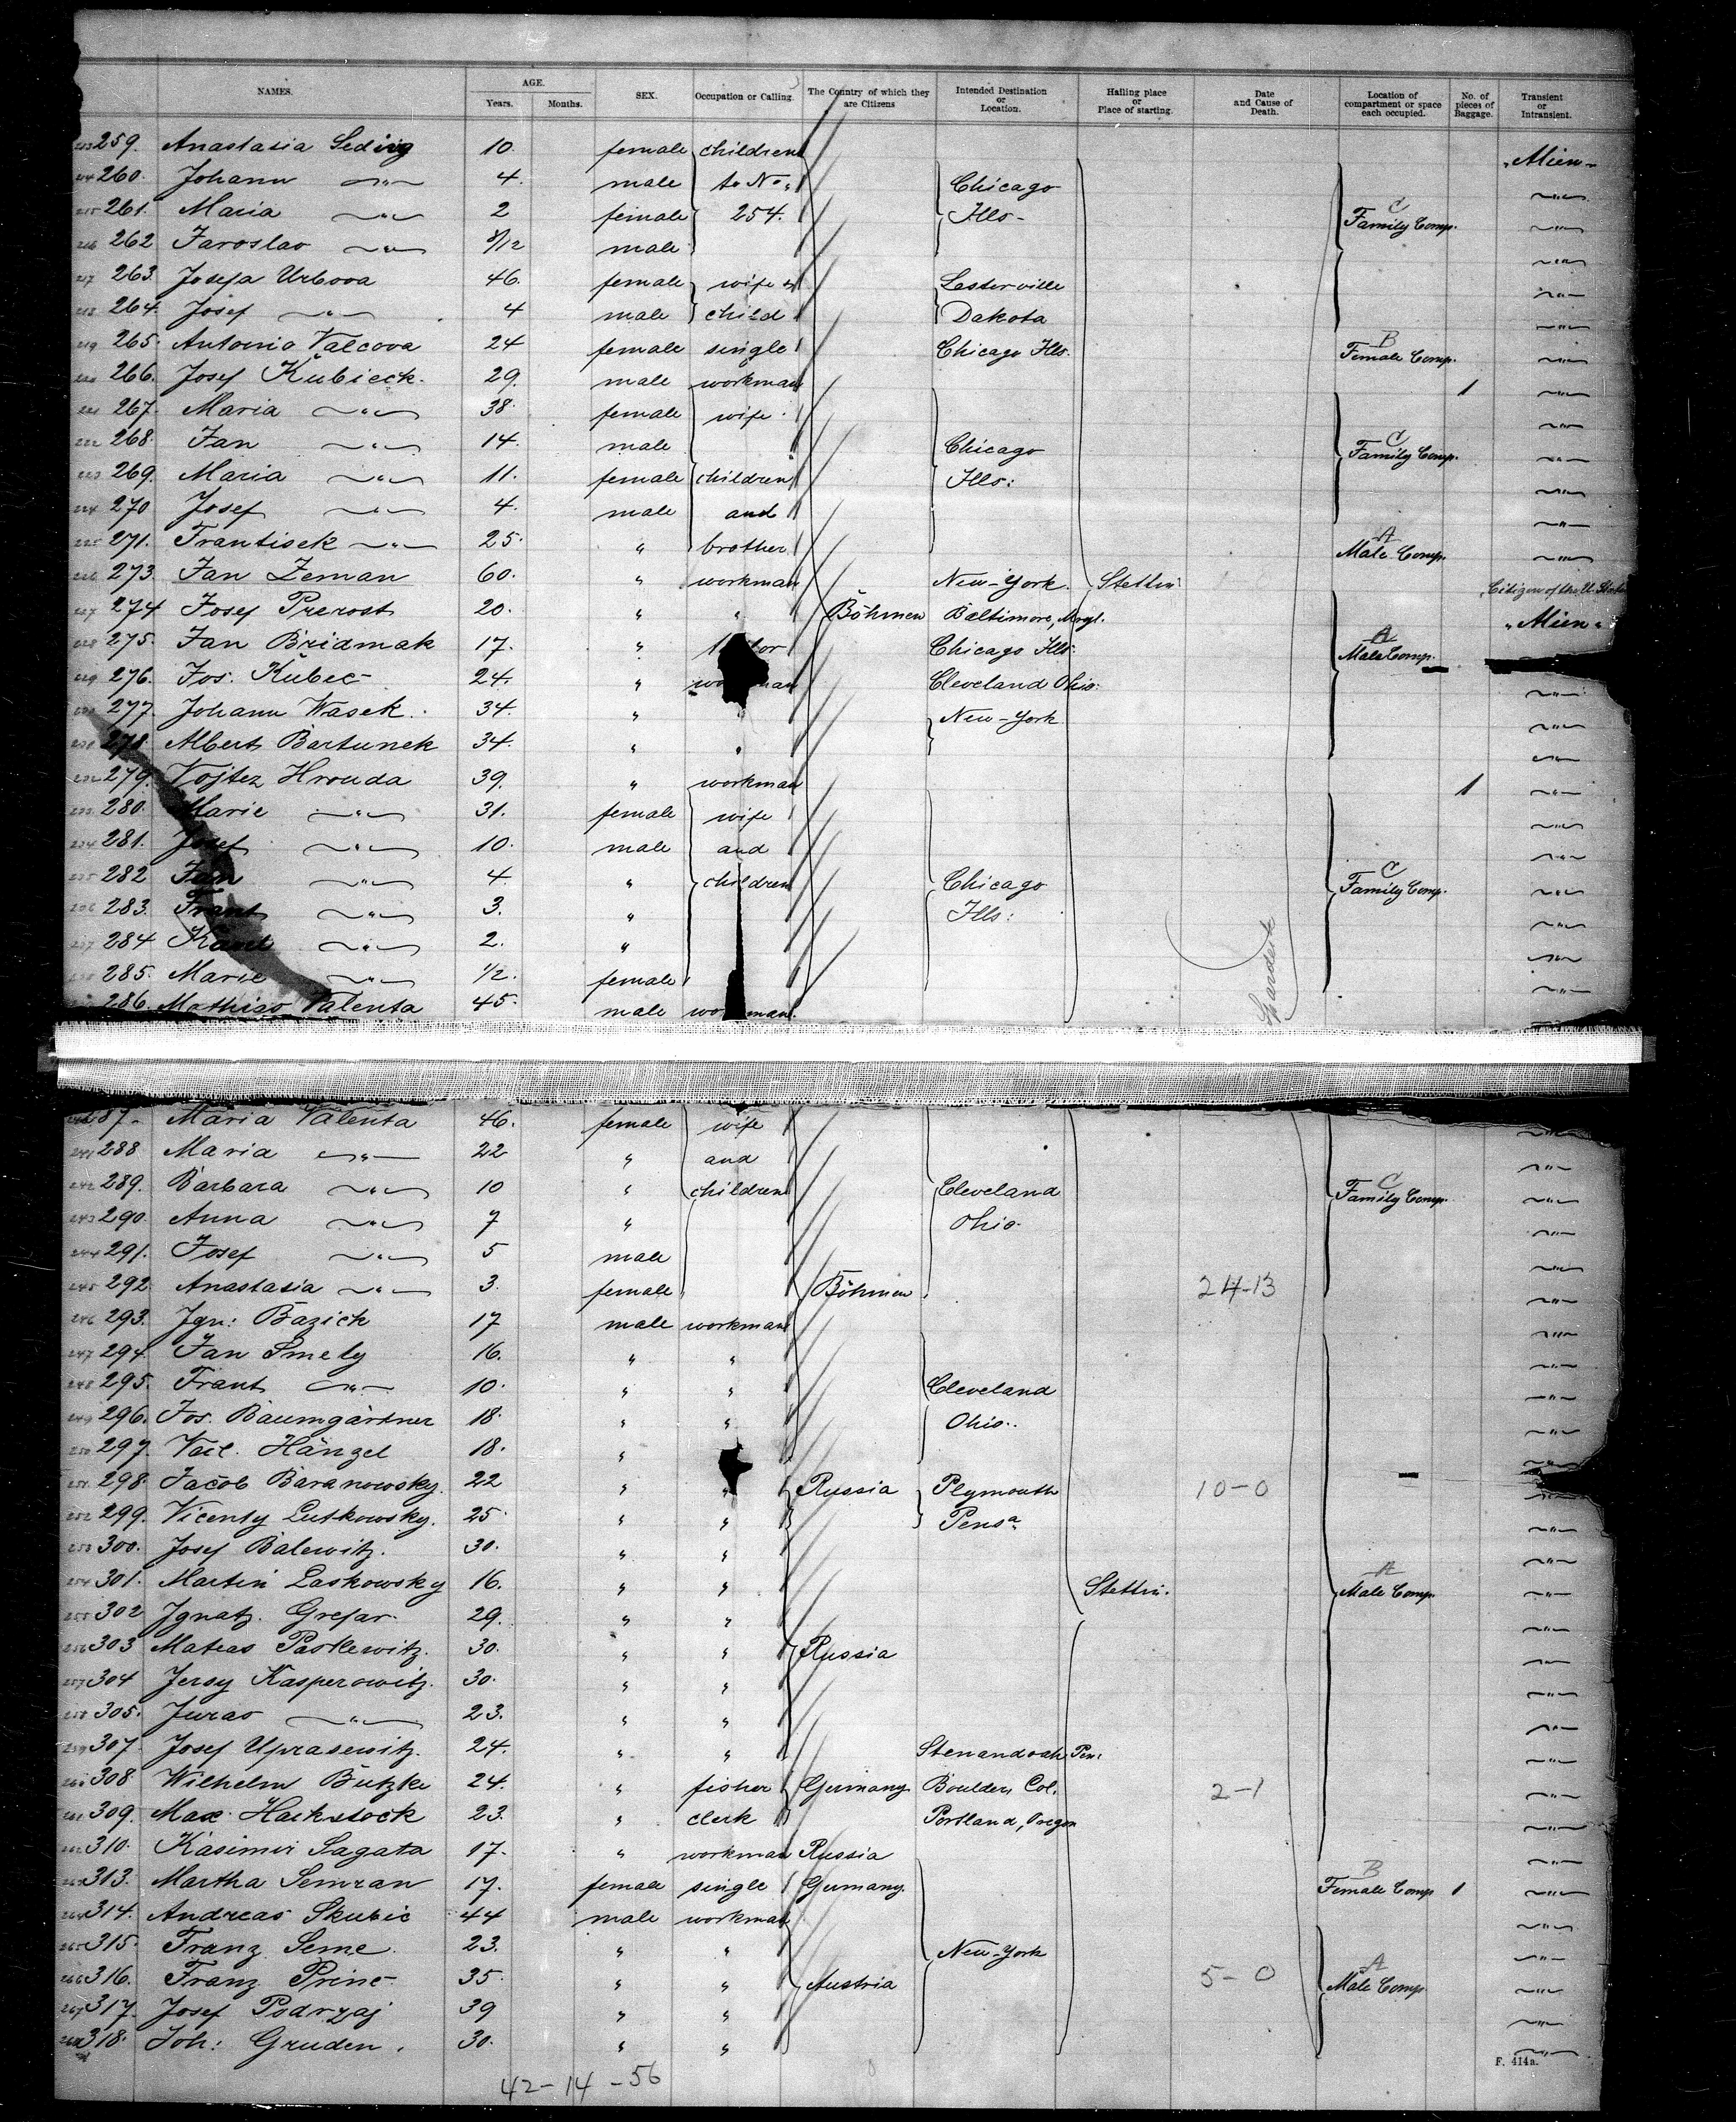 NAMES. AGE. Years. Months. SEX. Occupation or Calling. The Country of which they are Citizens Intended Destination or Location. Hailing place or Place of starting. Date and Cause of Death. Location of compartment or space each occupied. No. of pieces of Baggage. Transient or Intransient.
259. Anastasia 10. female children "Alien"
260. Johann " 4. male to No. Chicago "
261. Maria " 2 female 254. Ills- C Family Comp. "
262 Jaroslav " 8/12 male "
263. Josefa Urbova 46. female wife & Lesterville "
264. Josef " 4 male child Dakota "
265. Antonia Valcova 24 female single Chicago Ills. B Female Comp. "
266. Josef Kubicek. 29. male workman 1 "
267. Maria " 38. female wife "
268. Jan " 14. male Chicago C Family Comp. "
269. Maria " 11. female children Ills: "
270 Josef " 4. male and "
271. Frantisek " 25. " brother A Male Comp. "
273. Jan Zeman 60. " workman New-York. Stettin Citizen of the U. States
274 Josef Prerost 20. " " Böhmen Baltimore, Maryl. "Alien"
275. Jan Bridmak 17. " Chicago Ills. A Male Comp.
276. Jos. Kubec 24. " workman Cleveland Ohio. "
277. Johann Wasek. 34. " " New-York "
278. Albert Bartunek 34. " " "
279. Vojtez Hrouda 39. " workman 1 "
280. Marie " 31. female wife "
281. Josef " 10. male and "
282 Jan " 4. " children Chicago C Family Comp. "
283. Frant " 3. " Ills: "
284 Karel " 2. " "
285. Marie " 1/2. female "
286. Mathias Valenta 45. male workman.
287. Maria Valenta 46. female wife "
288 Maria " 22 " and "
289. Barbara " 10 " children Cleveland C Family Comp. "
290. Anna " 7 " Ohio. "
291. Josef " 5 male "
292. Anastasia " 3. female Böhmen 24-13 "
293. Ign: Bazick 17 male workman "
294. Jan Smely 16. " " "
295. Frant " 10. " " Cleveland "
296. Jos. Baumgärtner 18. " " Ohio.. "
297. Hänzel 18. " "
298. Jacob Baranowsky. 22 " " Russia Plymouth 10-0 "
299. Vicenty Lutkowsky. 25. " " Pensa. "
300. Josef Balewitz. 30. " " "
301. Martin Laskowsky 16. " " Stettin. A Male Comp. "
302 Ignatz Grefar. 29. " " "
303 Mateas Paskewitz. 30. " " Russia "
304 Jersy Kasperowitz. 30. " " "
305. Juras " 23. " " "
307. Josef Uprasewitz. 24. " " Stenandoah Pen: "
308 Wilhelm Butzke 24. " fisher Germany. Boulder, Col. 2-1 "
309. Max Hackstock 23. " clerk Portland, Oregon "
310. Kasimir Sagata 17. " workman Russia "
313. Martha Semran 17. female single Germany. B Female Comp 1 "
314. Andreas Skubic 44 male workman "
315. Franz Seme. 23. " " New-York "
316. Franz Princ 35. " " Austria 5-0 A Male Comp "
317. Josef Podrzaj 39 " " "
318. Joh: Gruden. 30. " " "
F. 414a.
42-14-56